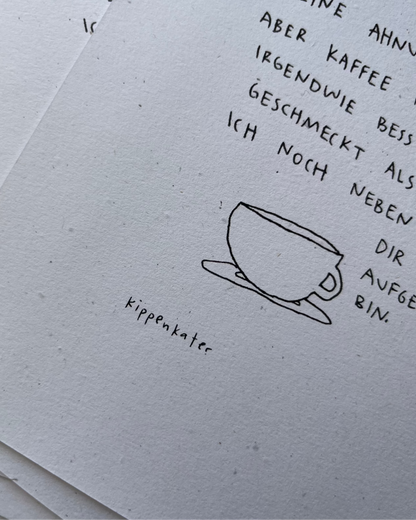 AHNU
ABER KAFFEE
IRGENDWIE BESS
GESCHMECKT ALS
ICH NOCH NEBEN
DIR
AUFGE
BIN.
kippenkater